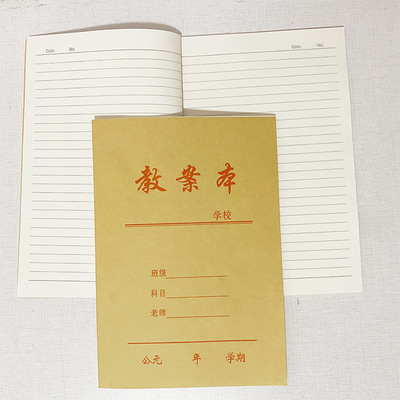 Date. No.
Date. No.
教案本
学校
班级
科目
老师
公元 年 学期